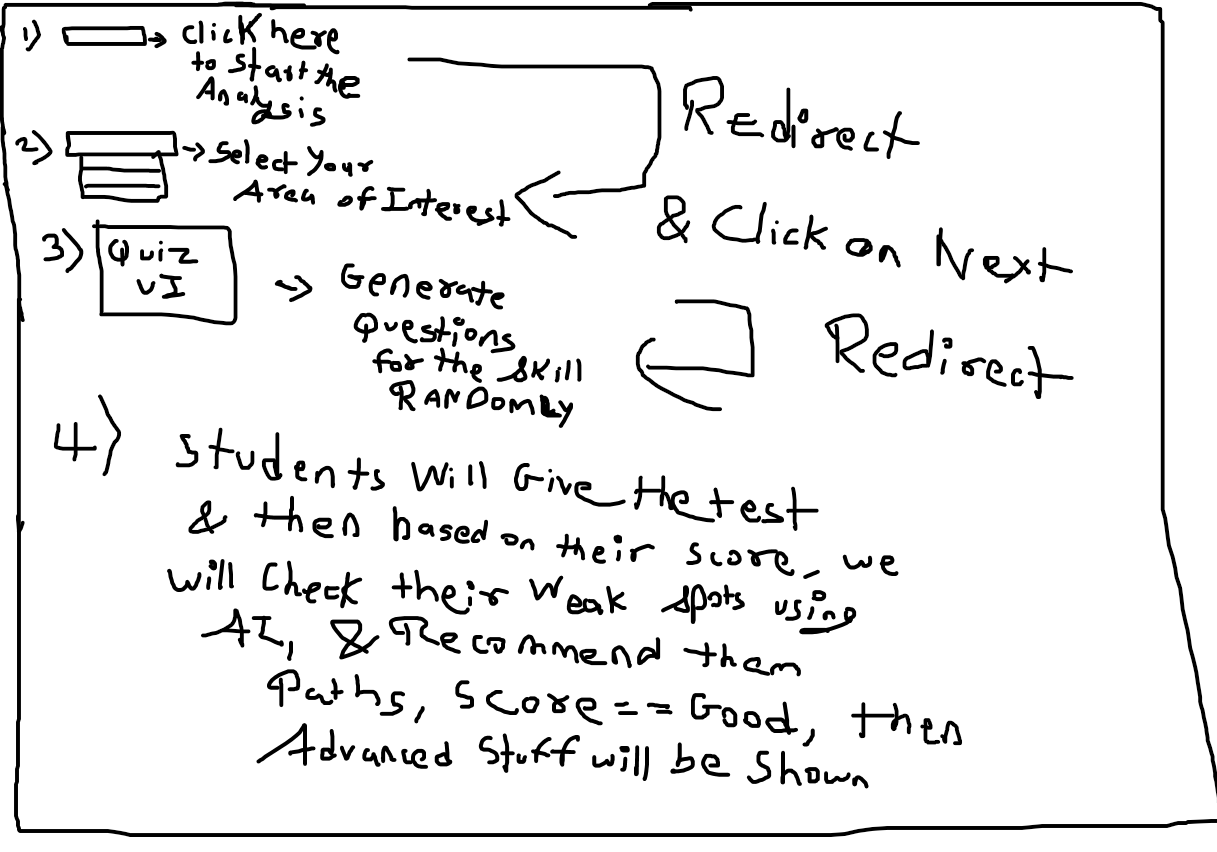 1) → Click here
to start the
Analysis
Redirect
2) → Select Your
Area of Interest
& Click on Next
3) Quiz
UI
→ Generate
Questions
for the skill
RANDOMLY
Redirect
4) Students Will Give the test
& then based on their score, we
will Check their Weak spots using
AI, & Recommend them
Paths, Score == Good, then
Advanced Stuff will be Shown